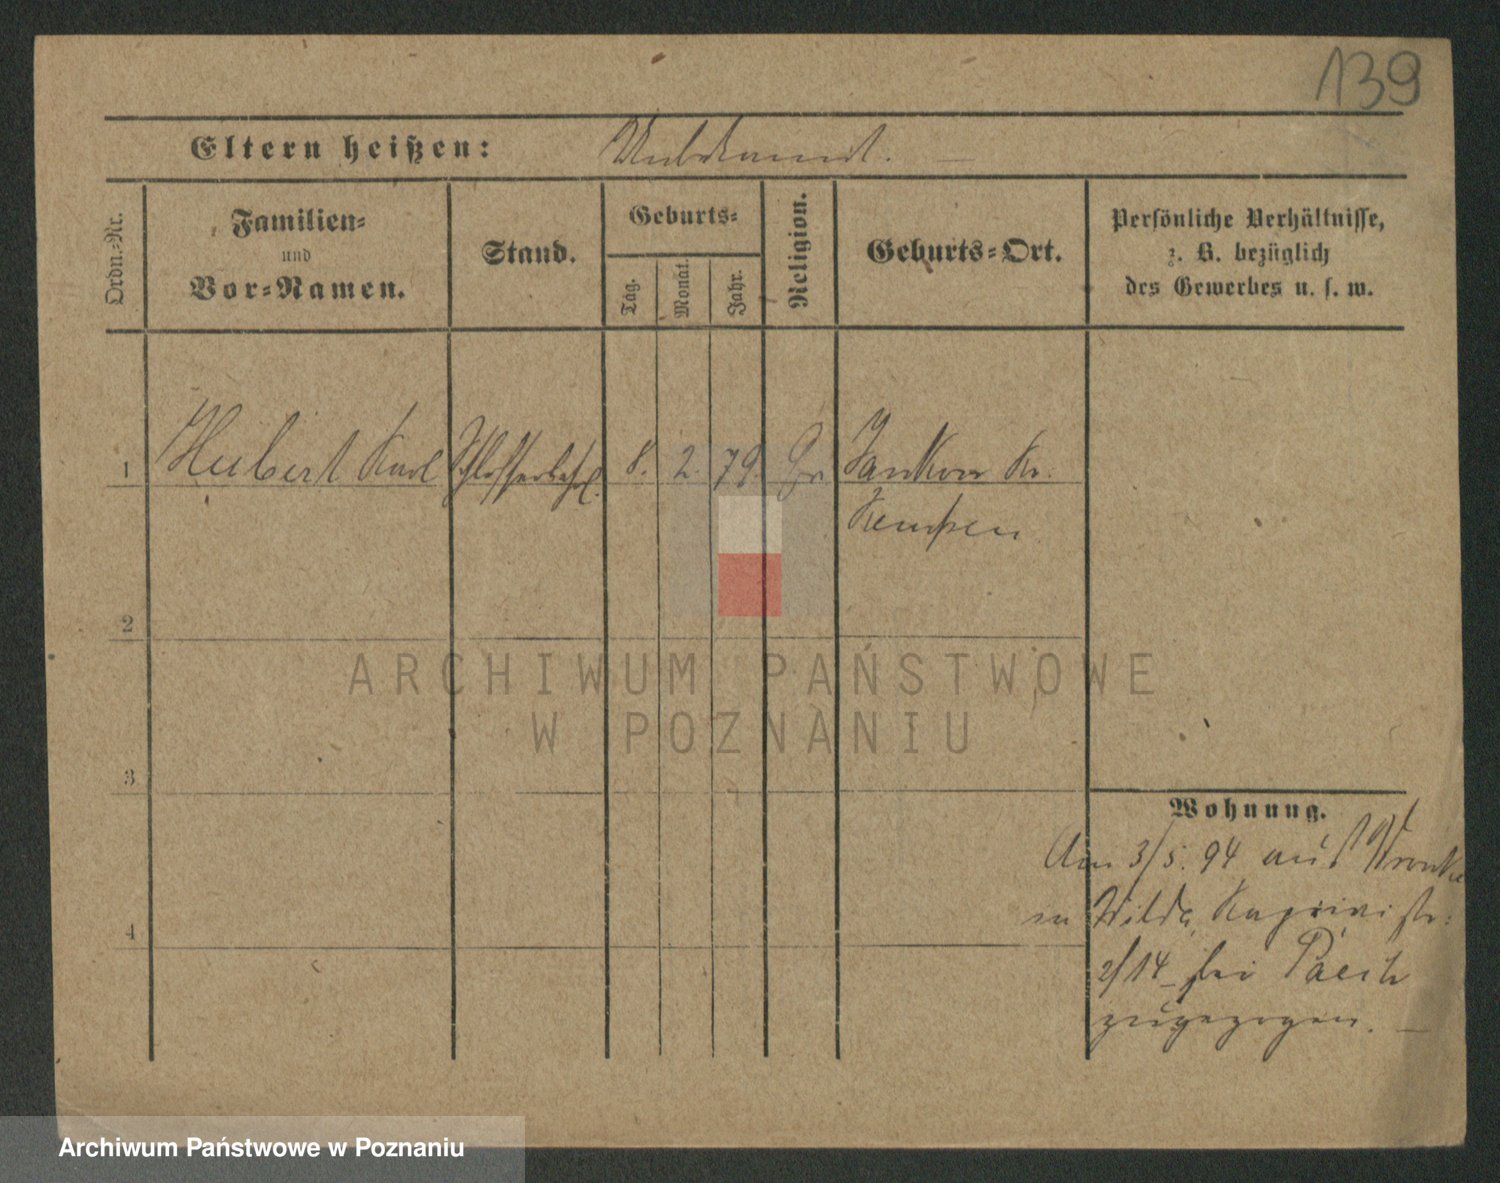 139
Eltern heißen: Unbekannt. —
Ordn.-Nr.
Familien-
und
Vor-Namen.
Stand.
Geburts-
Tag.
Monat.
Jahr.
Religion.
Geburts-Ort.
Persönliche Verhältnisse,
z. B. bezüglich
des Gewerbes u. s. w.
1 Hubert Karl Schlosserlehrl. 8. 2. 79. Jankow Kr.
Kempen
2
3
4
Wohnung.
Am 3/5. 94 aus Wronke
in Wilda, Kaprivistr.
2/14 bei
zugezogen. —
ARCHIWUM PAŃSTWOWE
W POZNANIU
Archiwum Państwowe w Poznaniu